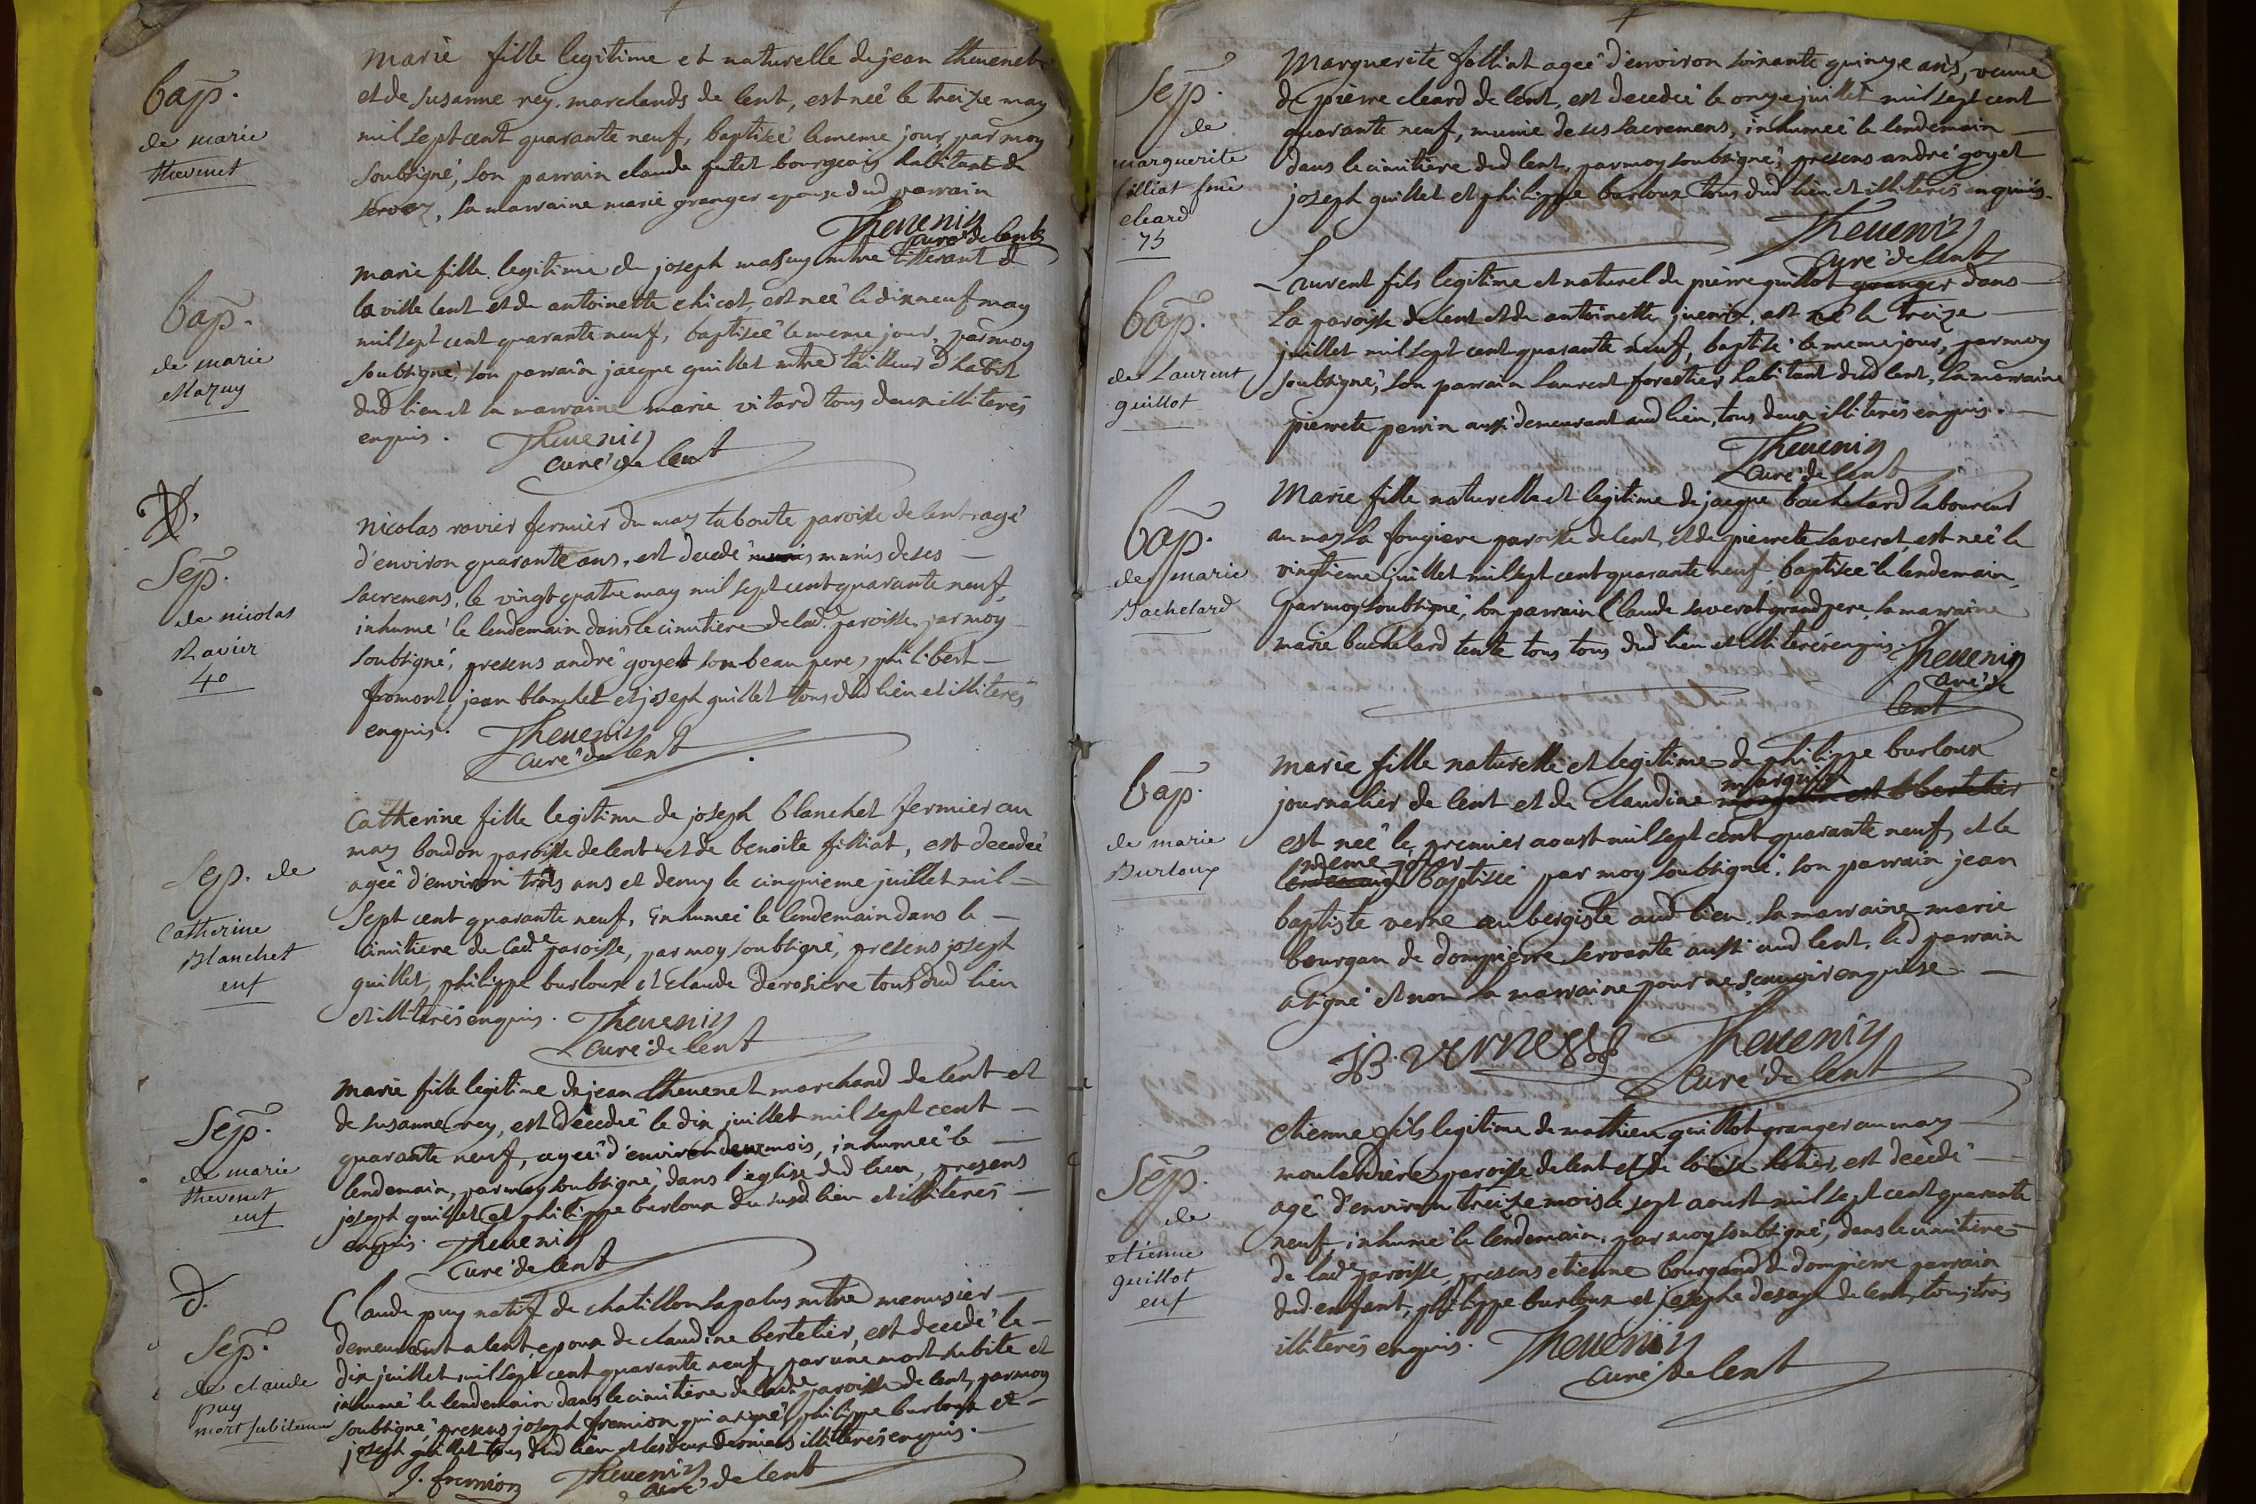 Bap.
de marie
thevenet
marie fille legitime et naturelle de jean thevenet
et de susanne rey. marchands de lent, est née le treize may
mil sept cent quarante neuf, baptisée le meme jour, par moy
soubsigné, son parrain claude putet bourgeois habitant de
servaz, sa marraine marie granger epouse dud parrain
Thevenin
curé de lent
Bap.
de marie
Mazuy
marie fille legitime de joseph masuy mtre tisserant de
la ville lent et de antoinette chicot, est née le dixneuf may
mil sept cent quarante neuf, baptisée le meme jour, par moy
soubsigné, son parrain jacque guillet mtre tailleur d'habit
dud lieu et la marraine marie vitard tous deux illiterés
enquis.
Thevenin
curé de lent
D.
Sep.
de nicolas
Ravier
40
nicolas rovier fermier du maz taboute paroisse de lent agé
d'environ quarante ans, est decedé munis de ses
sacremens, le vingt quatre may mil sept cent quarante neuf,
inhumé le lendemain dans le cimitiere de lad. paroisse, par moy
soubsigné, presens andré goyet son beau pere, philibert
fromont, jean blanchet et joseph guillet tous dud lieu et illiterés
enquis.
Thevenin
curé de lent
Sep. de
Catherine
Blanchet
enf
Catherine fille legitime de joseph blanchet fermier au
maz boudon paroisse de lent et de benoite filliat, est decedée
agée d'environ trois ans et demy le cinquieme juillet mil
sept cent quarante neuf, inhumée le lendemain dans le
cimitiere de lade paroisse, par moy soubsigné, presens joseph
guillet, philippe burloux et Claude derosiere tous dud lieu
et illiterés enquis.
Thevenin
curé de lent
Sep.
de marie
thevenet
enf
marie fille legitime de jean thevenet marchand de lent et
de susanne rey, est decedée le dix juillet mil sept cent
quarante neuf, agée d'environ deux mois, inhumée le
lendemain, par moy soubsigné, dans l'eglise dud lieu, presens
joseph guillet et philippe burloux du susd lieu et illiterés
enquis.
Thevenin
curé de lent
D.
Sep.
de claude
puy
mort subitement
Claude puy natif de chatillon lapalus mtre menusier
demeurant a lent, epoux de claudine bertelier, est decedé le
dix juillet mil sept cent quarante neuf, par une mort subite et
inhumé le lendemain dans le cimitiere de lade paroisse de lent, par moy
soubsigné, presens joseph fremion qui a signé, philippe burloux et
joseph guillet tous dud lieu et les deux derniers illiterés enquis.
J. fremion
Thevenin
curé de lent
Sep.
de
marguerite
filliat fme
cleard
75
Marguerite filliat agée d'environ soixante quinze ans, veuve
de pierre cleard de lent, est decedée le onze juillet mil sept cent
quarante neuf, munie de ses sacremens, inhumée le lendemain
dans le cimitiere dud lent, par moy soubsigné, presens andré goyet
joseph guillet et philippe burloux tous dud lieu et illiterés enquis.
Thevenin
curé de lent
Bap.
de Laurent
guillot
Laurent fils legitime et naturel de pierre guillot granger dans
la paroisse de lent et de antoinette juenin, est né le treize
juillet mil sept cent quarante neuf, baptisé le meme jour, par moy
soubsigné, son parrain laurent forestier habitant dud lent, la marraine
pierrete perrin aussi demeurant aud lieu, tous deux illiterés enquis.
Thevenin
curé de lent
Bap.
de marie
Bachelard
Marie fille naturelle et legitime de jacque bachelard laboureur
au maz la fougiere paroisse de lent, et de pierrete laverat, est née le
vingtieme juillet mil sept cent quarante neuf, baptisée le lendemain,
par moy soubsigné, son parrain Claude laverat grand pere, sa marraine
marie bachelard tente tous tous dud lieu et illiterés enquis.
Thevenin
curé de
lent
Bap.
de marie
Burloux
marie fille naturelle et legitime de philippe burloux
journalier de lent et de claudine marguin
est née le premier aoust mil sept cent quarante neuf, et le
meme jour baptisée par moy soubsigné, son parrain jean
baptiste verne aubergiste aud lieu. la marraine marie
bourgan de dompierre servante aussi aud lent, led parrain
a signé et non la marraine pour ne sçavoir enquise
JB. VERNE
Thevenin
curé de lent
Sep.
de
etienne
guillot
enf
etienne fils legitime de mathieu guillot granger au maz
moulardiere paroisse de lent et de loüise, est decedé
agé d'environ treize mois le sept aoust mil sept cent quarante
neuf, inhumé le lendemain, par moy soubsigné, dans le cimitiere
de lade paroisse, presens etienne bourgand de dompierre parrain
dud enfant, philippe burloux et joseph desage de lent, tous trois
illiterés enquis.
Thevenin
curé de lent